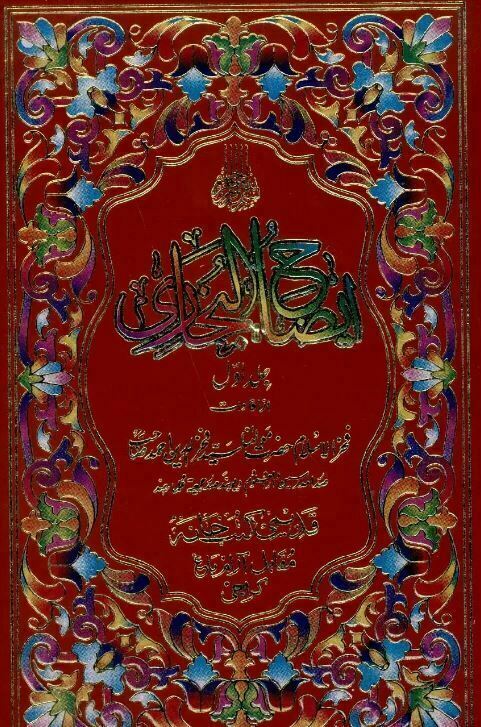 ایضاح البخاری
جلد اول
از افادات
فخر الاسلام حضرت مولانا سید فخر الدین احمد صاحب
قدیمی کتب خانہ
مقابل آرام باغ
کراچی